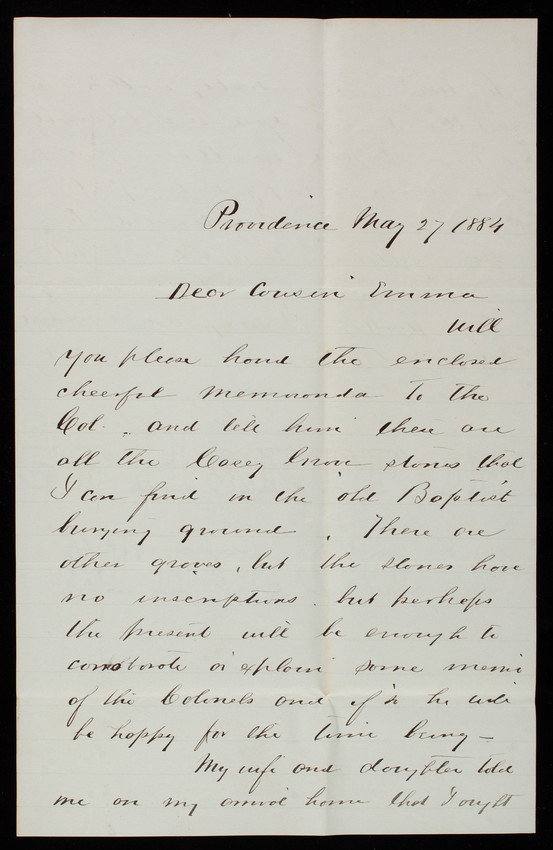 Providence May 27 1884
Dear Cousin Emma
Will
you please hand the enclosed
cheerful memoranda to the
Col. and tell him these are
all the Casey Grave stones that
I can find in the old Baptist
burying ground. There are
other graves, but the stones have
no inscriptions. but perhaps
the present will be enough to
corroborate or explain some memo
of the Colonels and if so he will
be happy for the time being—
My wife and daughter told
me on my arrival home that I ought